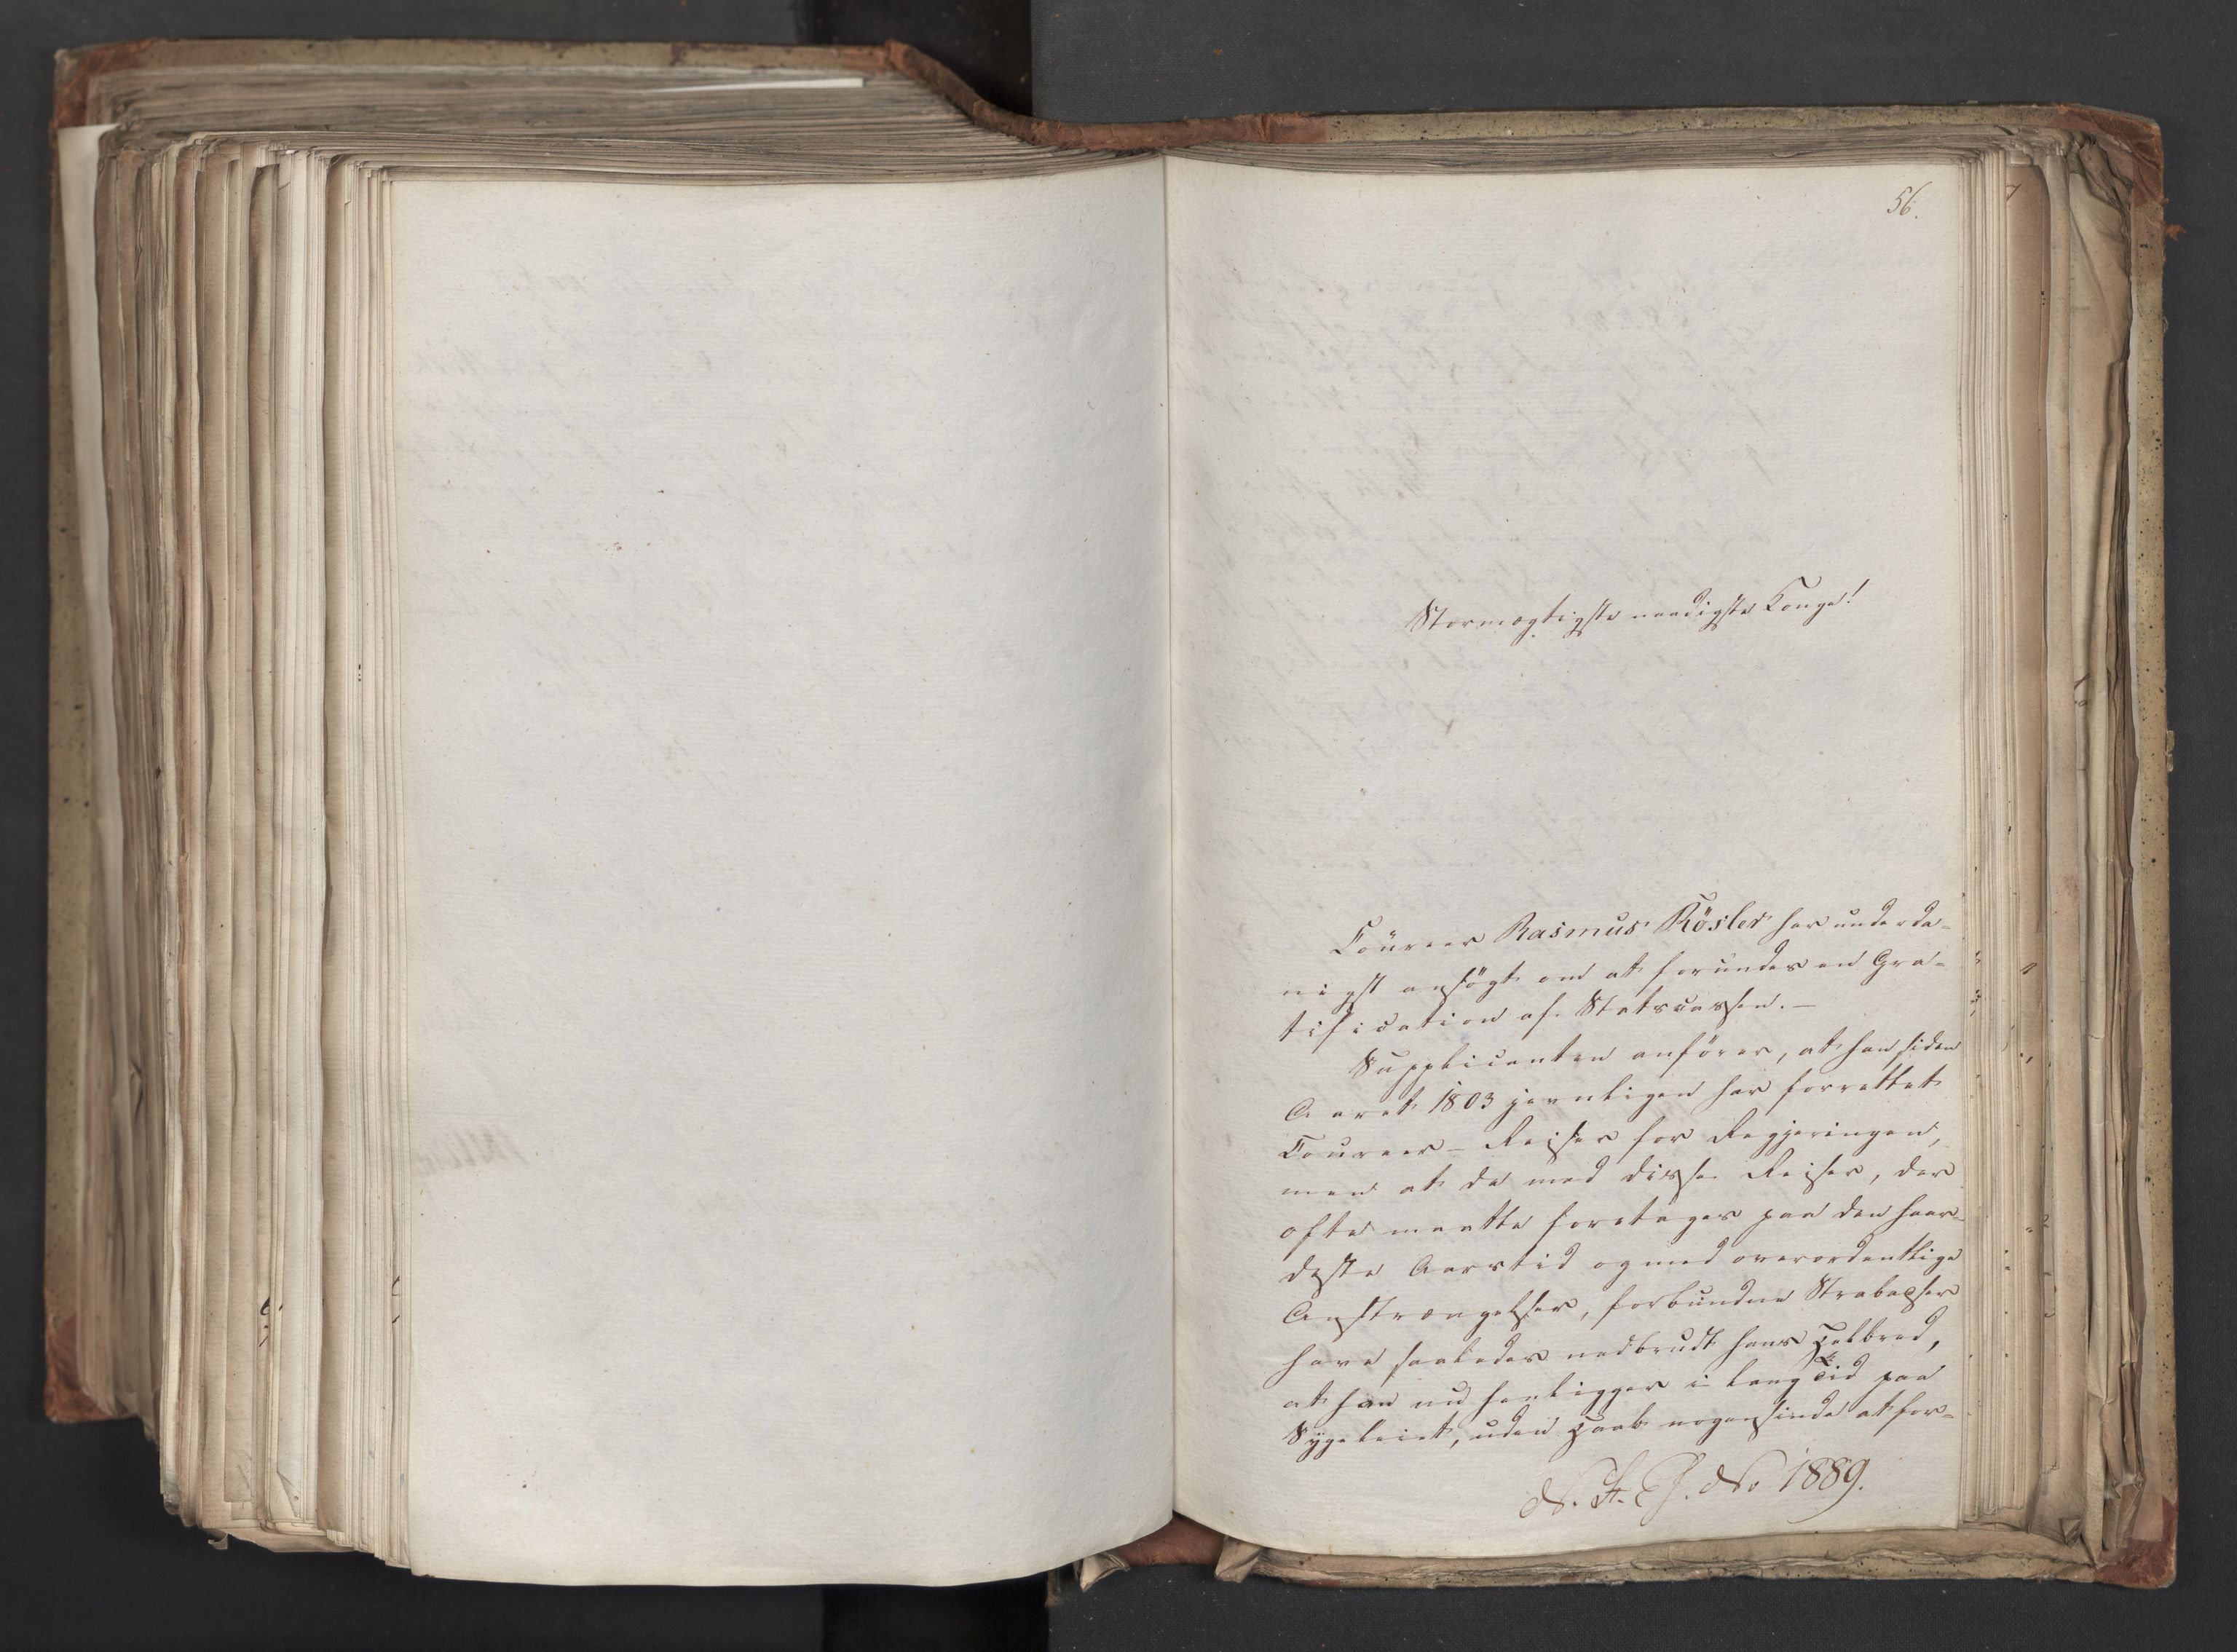 56.
Stormægtigste naadigste Konge!
Coureer Rasmus Rösler har underda-
nigst ansögt om at forundes en Gra-
tification af Statscassen.-
Supplicanten anförer, at han siden
Aaret 1803 jevnligen har forrettet
Coureer-Reiser for Regjeringen,
men at de med disse Reiser, der
ofte maatte foretages paa den haar-
deste Aarstid og med overordentlige
Anstrængelser, forbundne Strabadser
have saaledes nedbrudt hans Helbred,
at han nu henligger i lang Tid paa
Sygeleiet, uden Haab nogensinde at for-
No 1889.